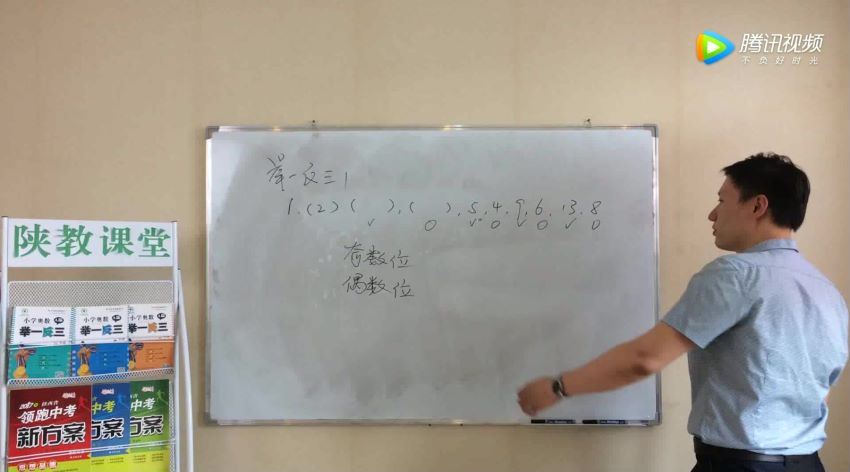 腾讯视频
不负好时光
举一反三 1
1. (2) (   ), (   ), 5, 4, 9, 6, 13, 8
奇数位
偶数位
陕教课堂
小学奥数
举一反三
小学奥数
举一反三
小学奥数
举一反三
2017
领跑中考
新方案
中考
方案
中考
方案